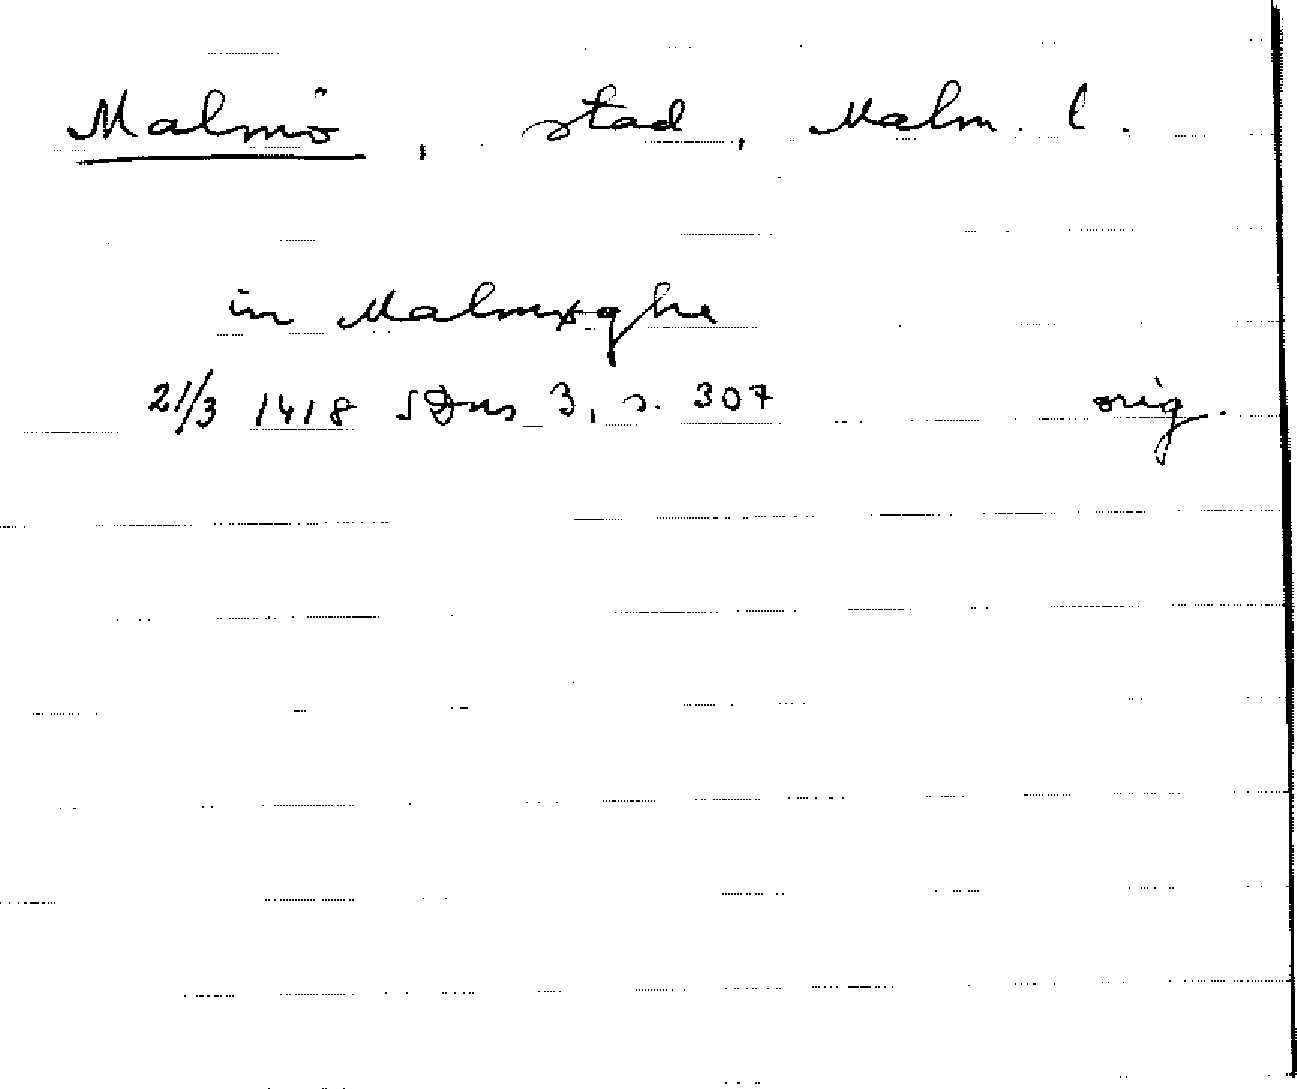 Malmö, stad, Malm. l.
in Malmøghe
21/3 1418 SDns 3, s. 307 orig.